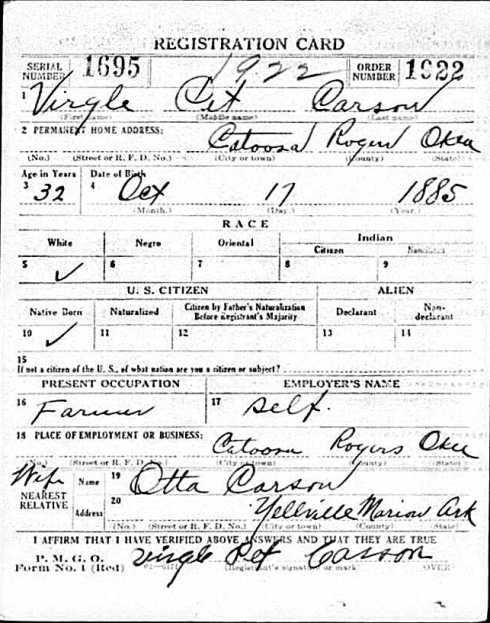 REGISTRATION CARD
SERIAL NUMBER 1695 1922 ORDER NUMBER 1922
1 Virgle Pet Carson
(First name) (Middle name) (Last name)
2 PERMANENT HOME ADDRESS: Catoosa Rogers Okla
(No.) (Street or R. F. D. No.) (City or town) (County) (State)
Age in Years Date of Birth
3 32 4 Oct 17 1885
(Month.) (Day.) (Year.)
RACE
White Negro Oriental Indian
Citizen Noncitizen
5 ✓ 6 7 8 9
U. S. CITIZEN ALIEN
Native Born Naturalized Citizen by Father's Naturalization Before Registrant's Majority Declarant Non-declarant
10 ✓ 11 12 13 14
15
If not a citizen of the U. S., of what nation are you a citizen or subject?
PRESENT OCCUPATION EMPLOYER'S NAME
16 Farmer 17 Self.
18 PLACE OF EMPLOYMENT OR BUSINESS: Catoosa Rogers Okla
(No.) (Street or R. F. D. No.) (City or town) (County) (State)
Wife
NEAREST RELATIVE Name 19 Otta Carson
Address 20 Yellville Marion Ark
(No.) (Street or R. F. D. No.) (City or town) (County) (State)
I AFFIRM THAT I HAVE VERIFIED ABOVE ANSWERS AND THAT THEY ARE TRUE
P. M. G. O.
Form No. 1 (Red) Virgle Pet Carson
(Registrant's signature or mark) OVER